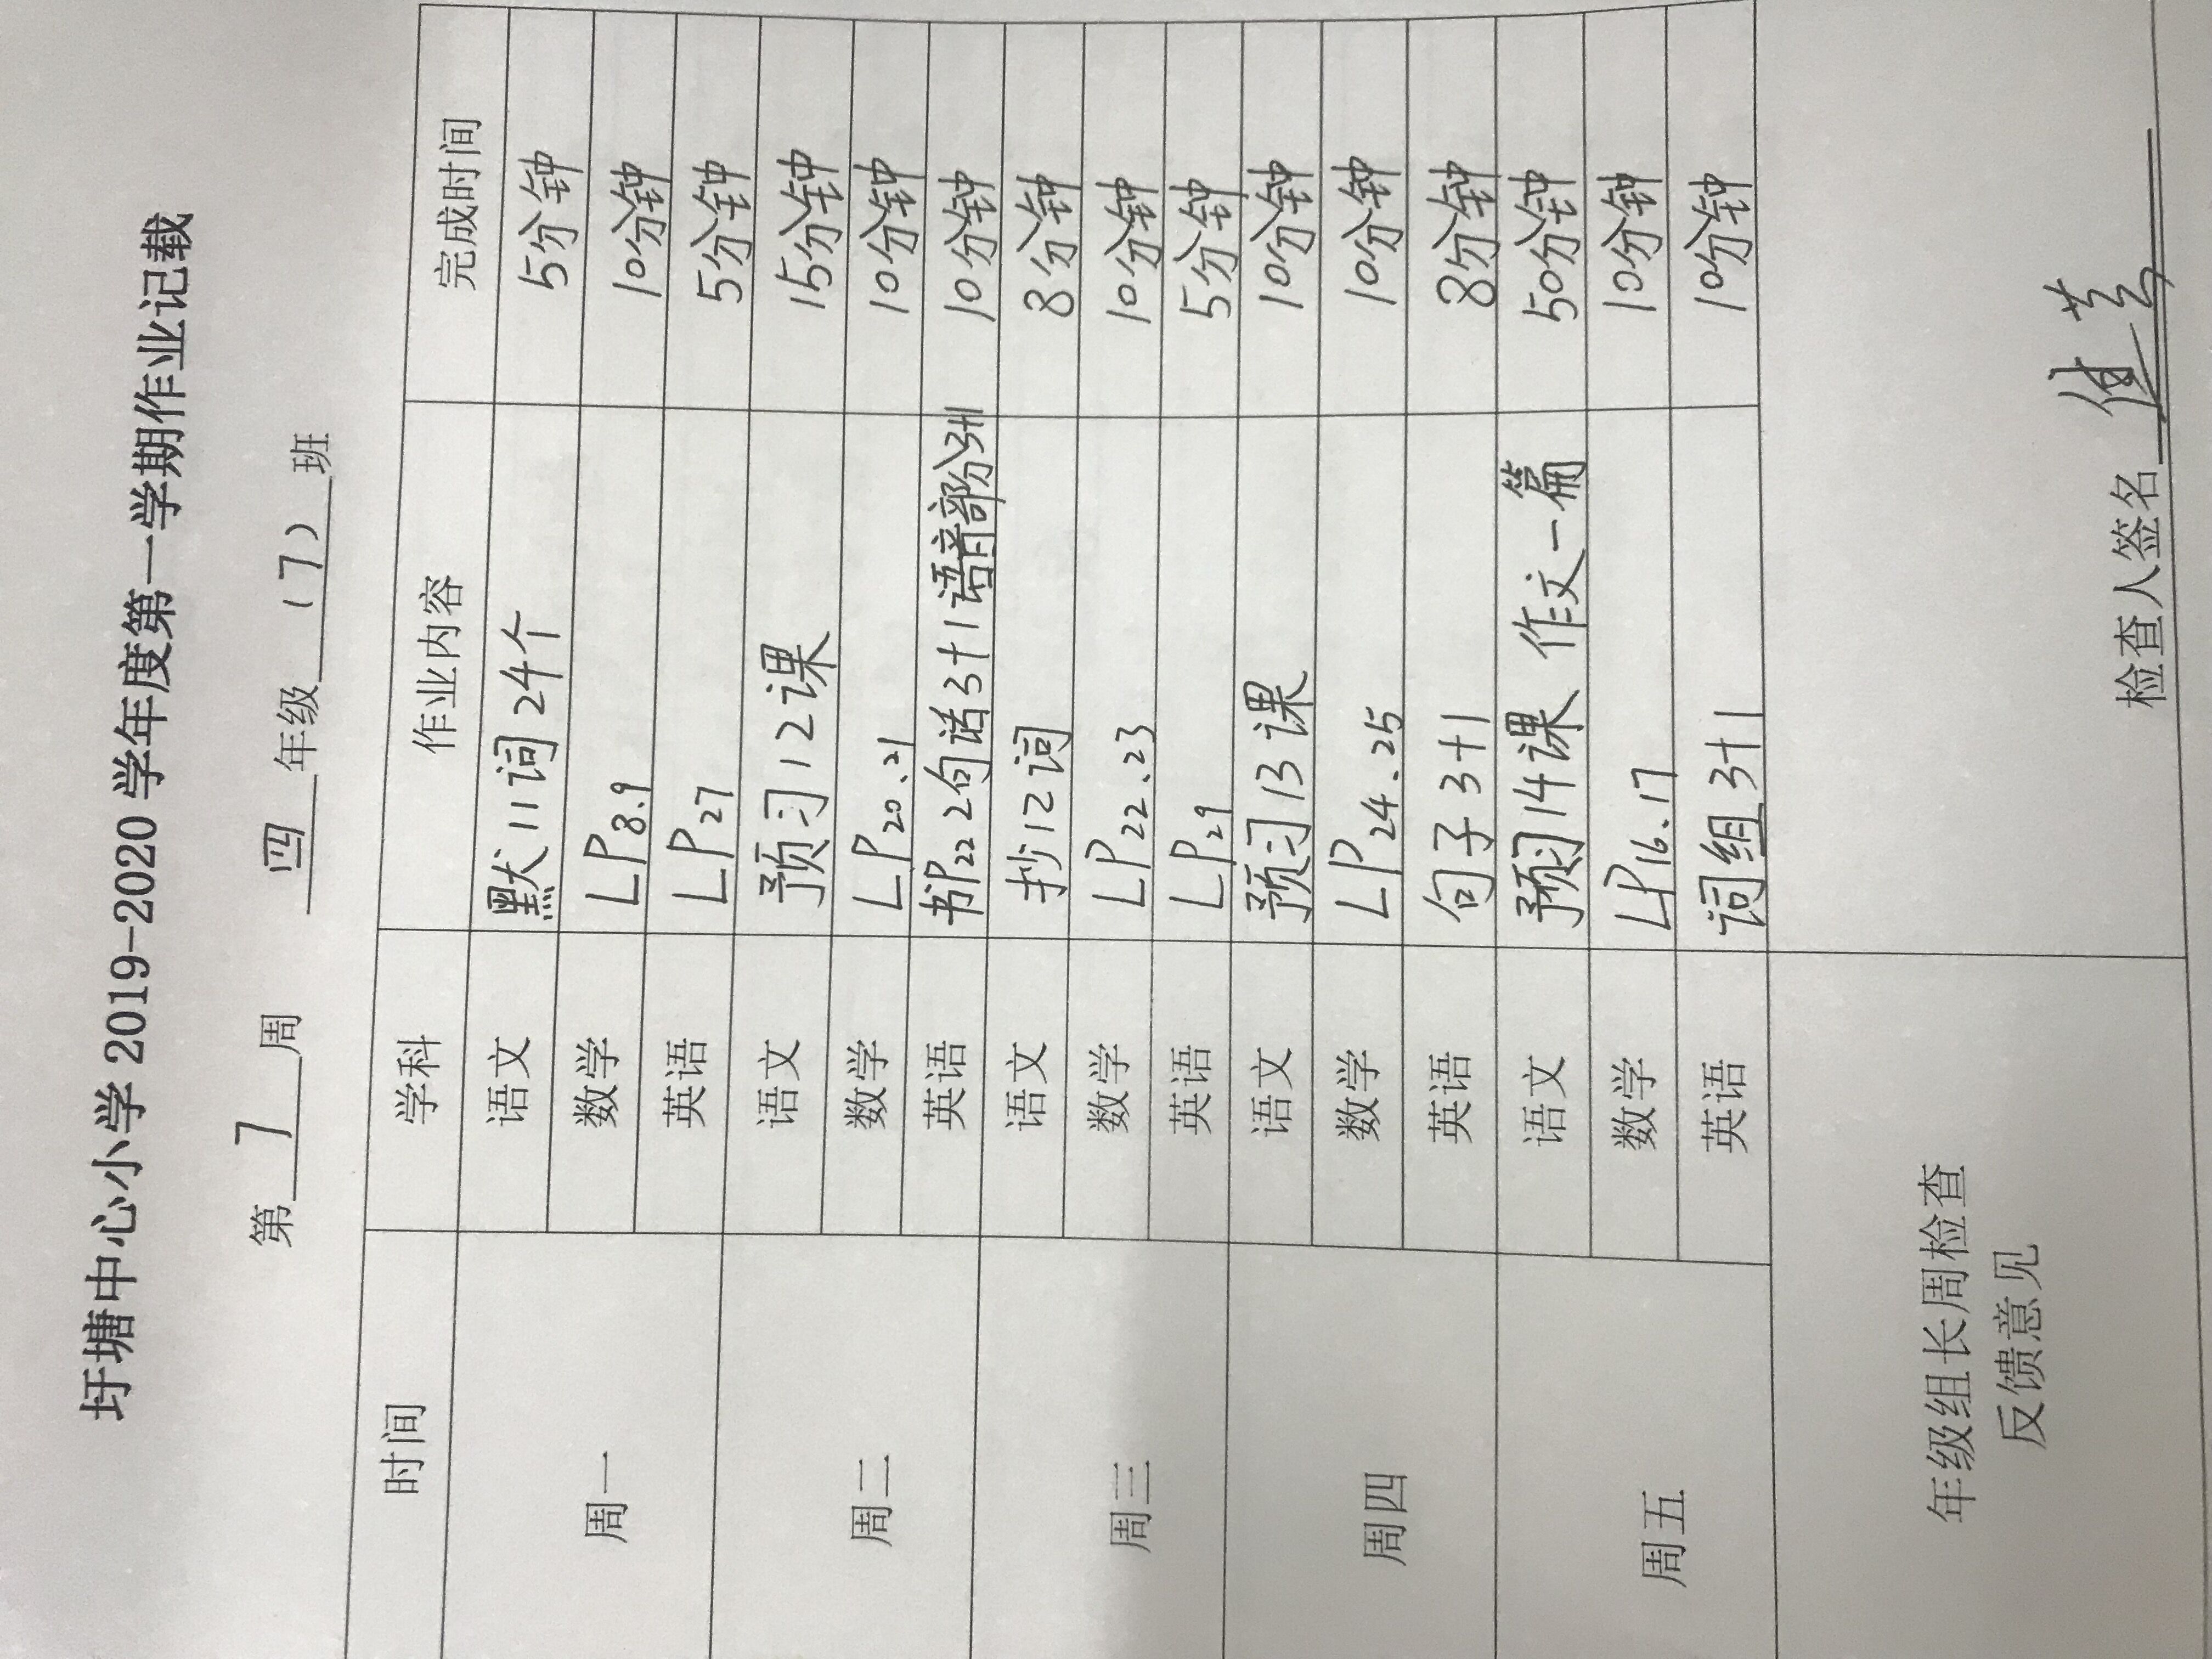 圩塘中心小学 2019-2020 学年度第一学期作业记载
第 7 周 四 年级 (7) 班
时间 学科 作业内容 完成时间
周一 语文 默11词24个 5分钟
数学 LP8.9 10分钟
英语 LP27 5分钟
周二 语文 预习12课 15分钟
数学 LP20.21 10分钟
英语 书P22 2句话3+1 语音部分3+1 10分钟
周三 语文 抄12词 8分钟
数学 LP22.23 10分钟
英语 LP29 5分钟
周四 语文 预习13课 10分钟
数学 LP24.25 10分钟
英语 句子3+1 8分钟
周五 语文 预习14课 作文一篇 50分钟
数学 LP16.17 10分钟
英语 词组3+1 10分钟
年级组长周检查
反馈意见
检查人签名